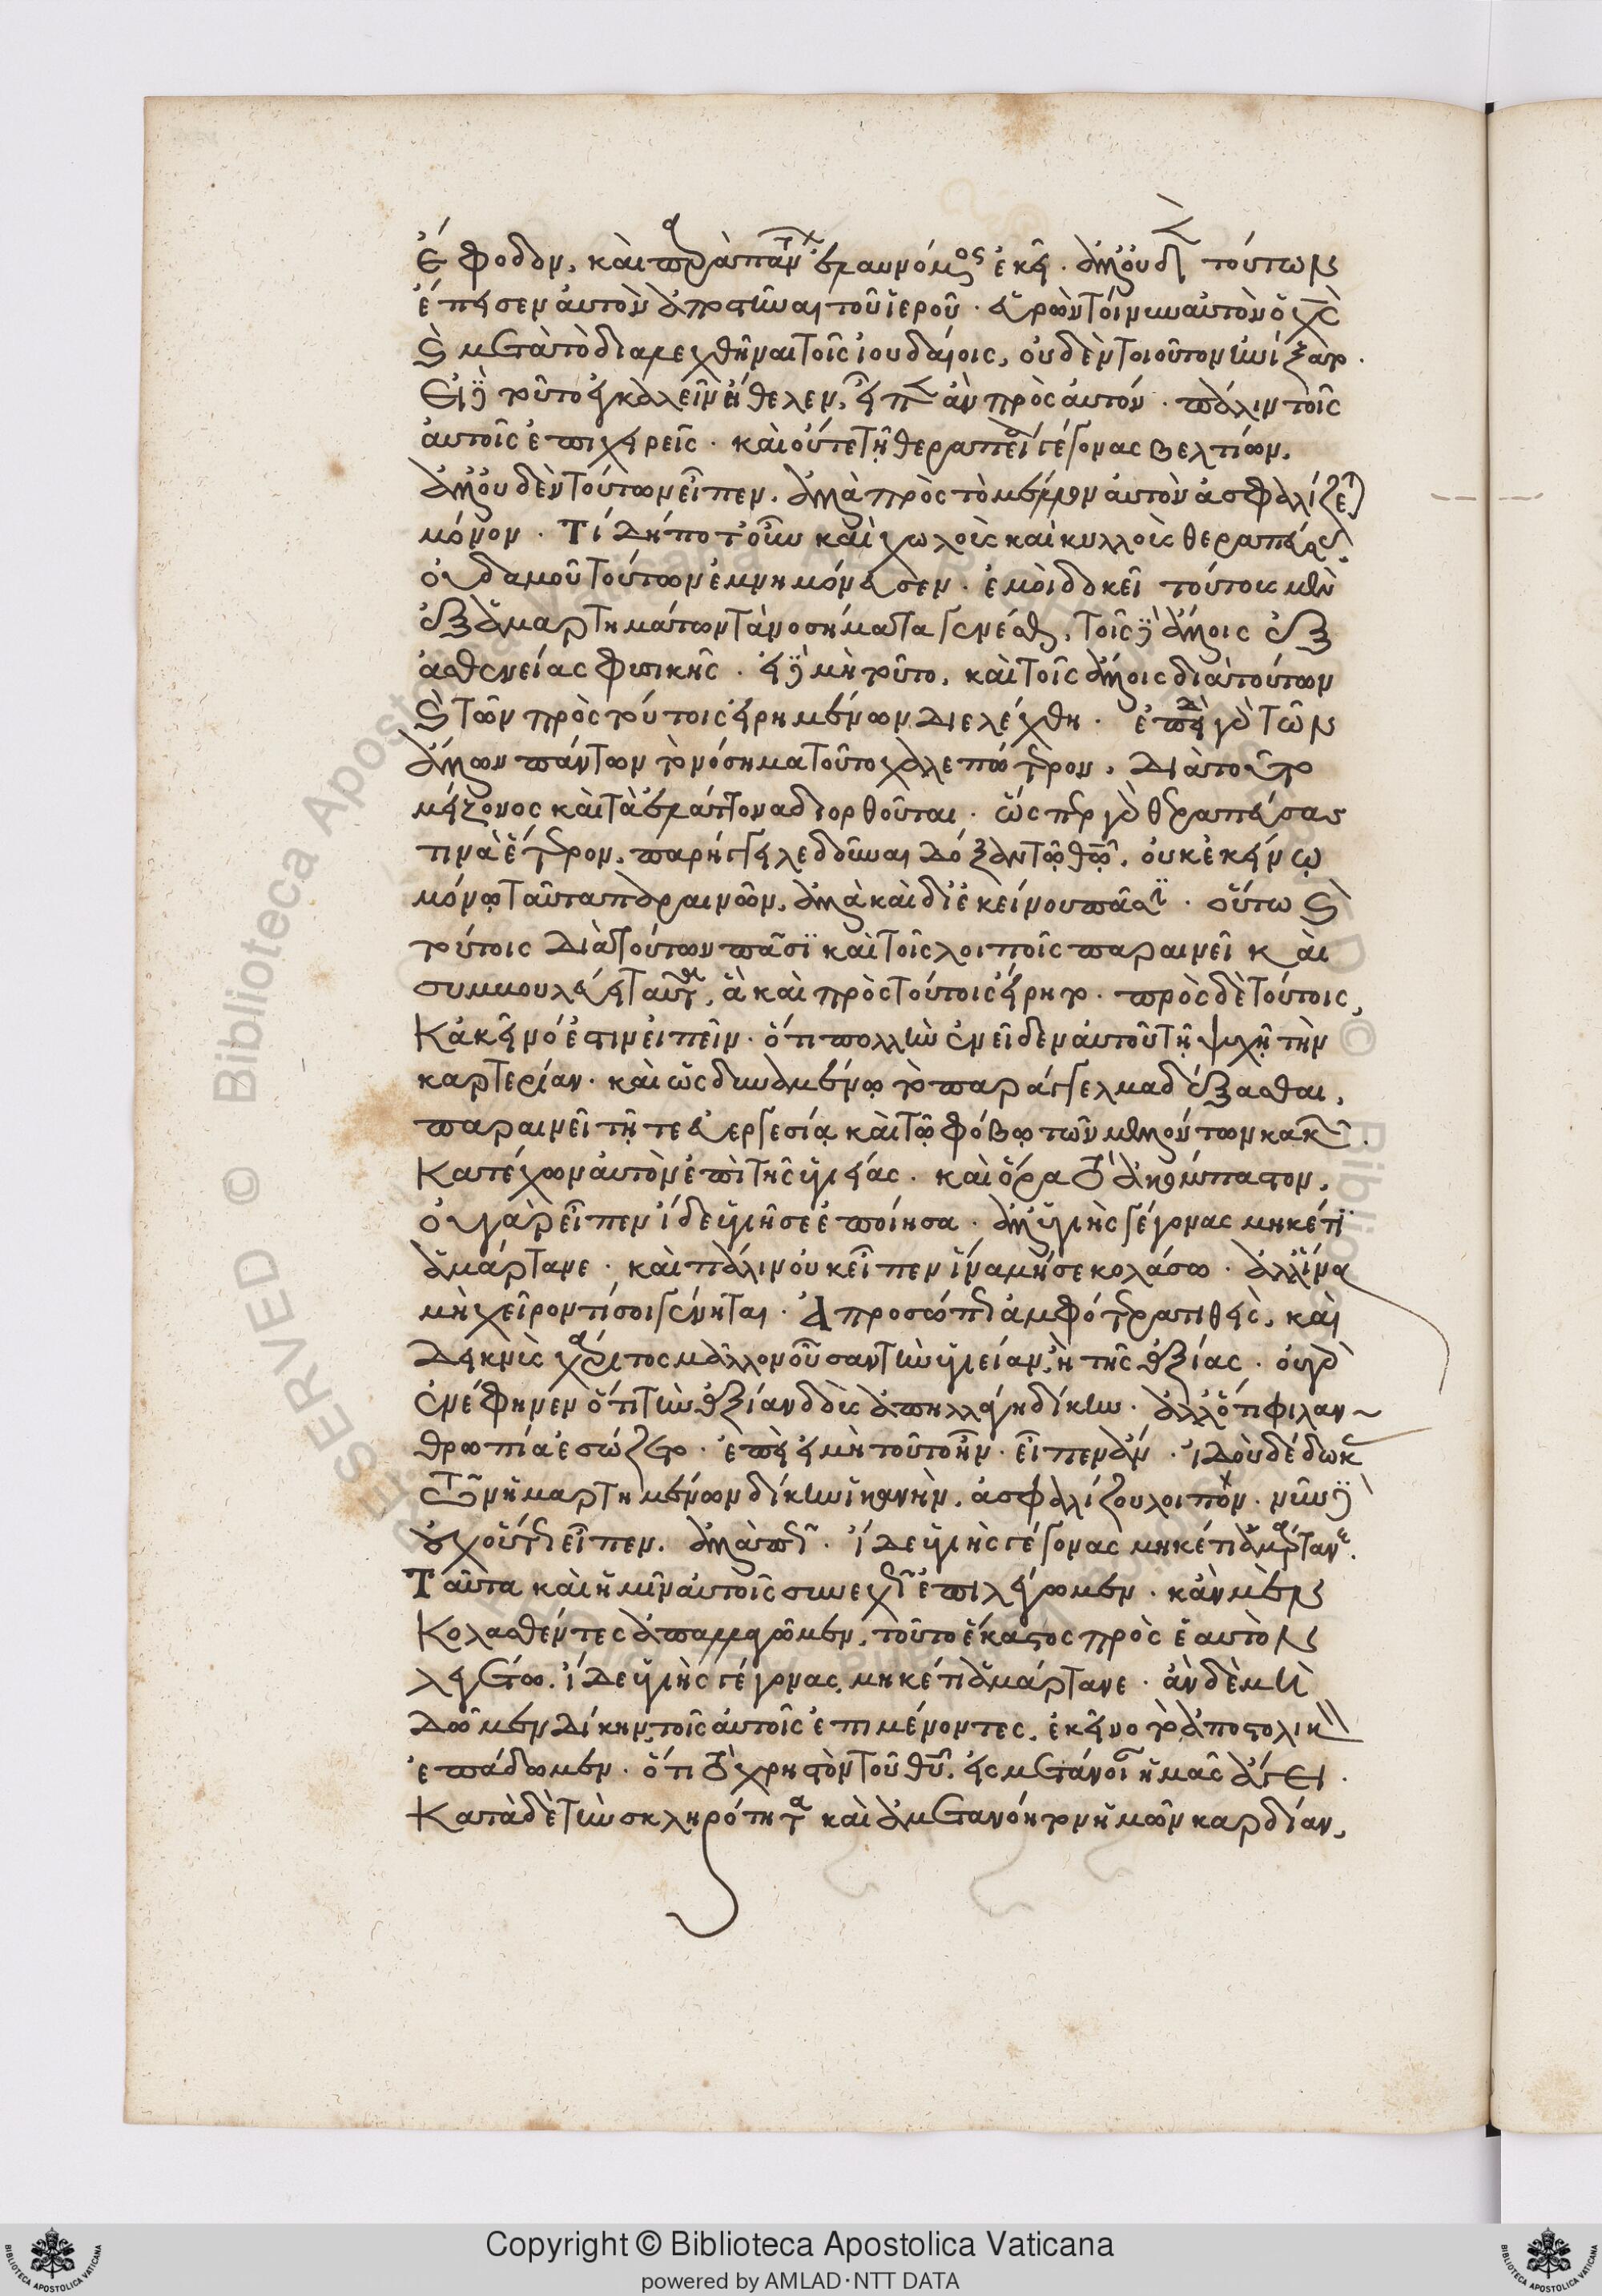 ἔφοδον, καὶ παρὰ πάντων ἐλαυνόμενος ἐκεῖ. ἀλλ' οὐδὲν τούτων
ἔπεισεν αὐτὸν ἀποστῆναι τοῦ ἱεροῦ. εὑρὼν τοίνυν αὐτὸν ὁ χς
καὶ μετὰ τὸ διαλεχθῆναι τοῖς ἰουδαίοις, οὐδὲν τοιοῦτον ἠνίξατο.
Εἰ δὲ τοῦτο ἐγκαλεῖν ἤθελεν, εἶπεν ἂν πρὸς αὐτόν. πάλιν τοῖς
αὐτοῖς ἐπιχειρεῖς. καὶ οὔτε τῇ θεραπείᾳ γέγονας βελτίων.
ἀλλ' οὐδὲν τούτων εἶπεν. ἀλλὰ πρὸς τὸ μέλλον αὐτὸν ἀσφαλίζεται
μόνον. Τί δήποτ' οὖν καὶ χωλοὺς καὶ κυλλοὺς θεραπεύσας
οὐδαμοῦ τούτων ἐμνημόνευσεν. ἐμοὶ δοκεῖ τούτοις μὲν
ἐξ ἁμαρτημάτων τὰ νοσήματα γενέσθαι, τοῖς δὲ ἄλλοις ἐξ
ἀσθενείας φυσικῆς. εἰ δὲ μὴ τοῦτο, καὶ τοῖς ἄλλοις διὰ τούτων
καὶ τῶν πρὸς τούτοις εἰρημένων διελέχθη. ἐπειδὴ γὰρ τῶν
ἄλλων πάντων τὸ νόσημα τοῦτο χαλεπώτερον, διὰ τοῦ
μείζονος καὶ τὰ ἐλάττονα διορθοῦται. ὥσπερ γὰρ θεραπεύσας
τινὰ ἕτερον, παρήγγειλε δοῦναι δόξαν τῷ θῶ, οὐκ ἐκείνῳ
μόνῳ ταῦτα παραινῶν, ἀλλὰ καὶ δι' ἐκείνου πᾶσι. οὕτω καὶ
τούτοις διὰ τούτων πᾶσϊ καὶ τοῖς λοιποῖς παραινεῖ καὶ
συμβουλεύει ταῦτα, ἃ καὶ πρὸς τούτοις εἴρητο. πρὸς δὲ τούτοις,
Κἀκεῖνό ἐστιν εἰπεῖν. ὅτι πολλὴν ἐνεῖδεν αὐτοῦ τῇ ψυχῇ τὴν
καρτερίαν. καὶ ὡς δυναμένῳ τὸ παράγγελμα δέξασθαι,
παραινεῖ τῇ τε εὐεργεσίᾳ καὶ τῷ φόβῳ τῶν μελλόντων κακῶν.
Κατέχων αὐτὸν ἐπὶ τῆς ὑγείας. καὶ ὅρα τὸ ἀκόμπαστον.
οὐ γὰρ εἶπεν ἴδε ὑγιῆ σε ἐποίησα. ἀλλ' ὑγιὴς γέγονας μηκέτϊ
ἁμάρτανε. καὶ πάλιν οὐκ εἶπεν ἵνα μή σε κολάσω. ἀλλ' ἵνα
μὴ χεῖρον τί σοι γένηται. Ἀπροσώπως ἀμφότερα τιθεὶς, καὶ
δεικνὺς χάριτος μᾶλλον οὖσαν τὴν ὑγείαν, ἢ τῆς ἀξίας. οὐ γὰρ
ἐνέφηνεν ὅτι τὴν ἀξίαν δοὺς ἀπηλλάγη δίκην. ἀλλ' ὅτι φιλαν-
θρωπίᾳ ἐσώζετο. ἐπεὶ εἰ μὴ τοῦτο ἦν. εἶπεν ἄν. ἰδοὺ δέδωκας
τῶν ἡμαρτημένων δίκην ἱκανὴν, ἀσφαλίζου λοιπόν. νῦν δὲ
οὐχ οὕτως εἶπεν. ἀλλὰ πῶς. ἴδε ὑγιὴς γέγονας μηκέτι ἁμάρτανε.
Ταῦτα καὶ ἡμῖν αὐτοῖς συνεχῶς ἐπιλέγωμεν. κἂν μὲν
Κολασθέντες ἀπαλλαγῶμεν, τοῦτο ἕκαστος πρὸς ἑαυτὸν
λεγέτω. ἴδε ὑγιὴς γέγονας, μηκέτι ἁμάρτανε. ἂν δὲ μὴ
δῶμεν δίκην, τοῖς αὐτοῖς ἐπιμένοντες, ἐκεῖνο τὸ ἀποστολικὸν
ἐπᾴδωμεν. ὅτι τὸ χρηστὸν τοῦ θυ, εἰς μετάνοιαν ἡμᾶς ἄγει.
Κατὰ δὲ τὴν σκληρότητα καὶ ἀμετανόητον ἡμῶν καρδίαν,
Copyright © Biblioteca Apostolica Vaticana
powered by AMLAD·NTT DATA